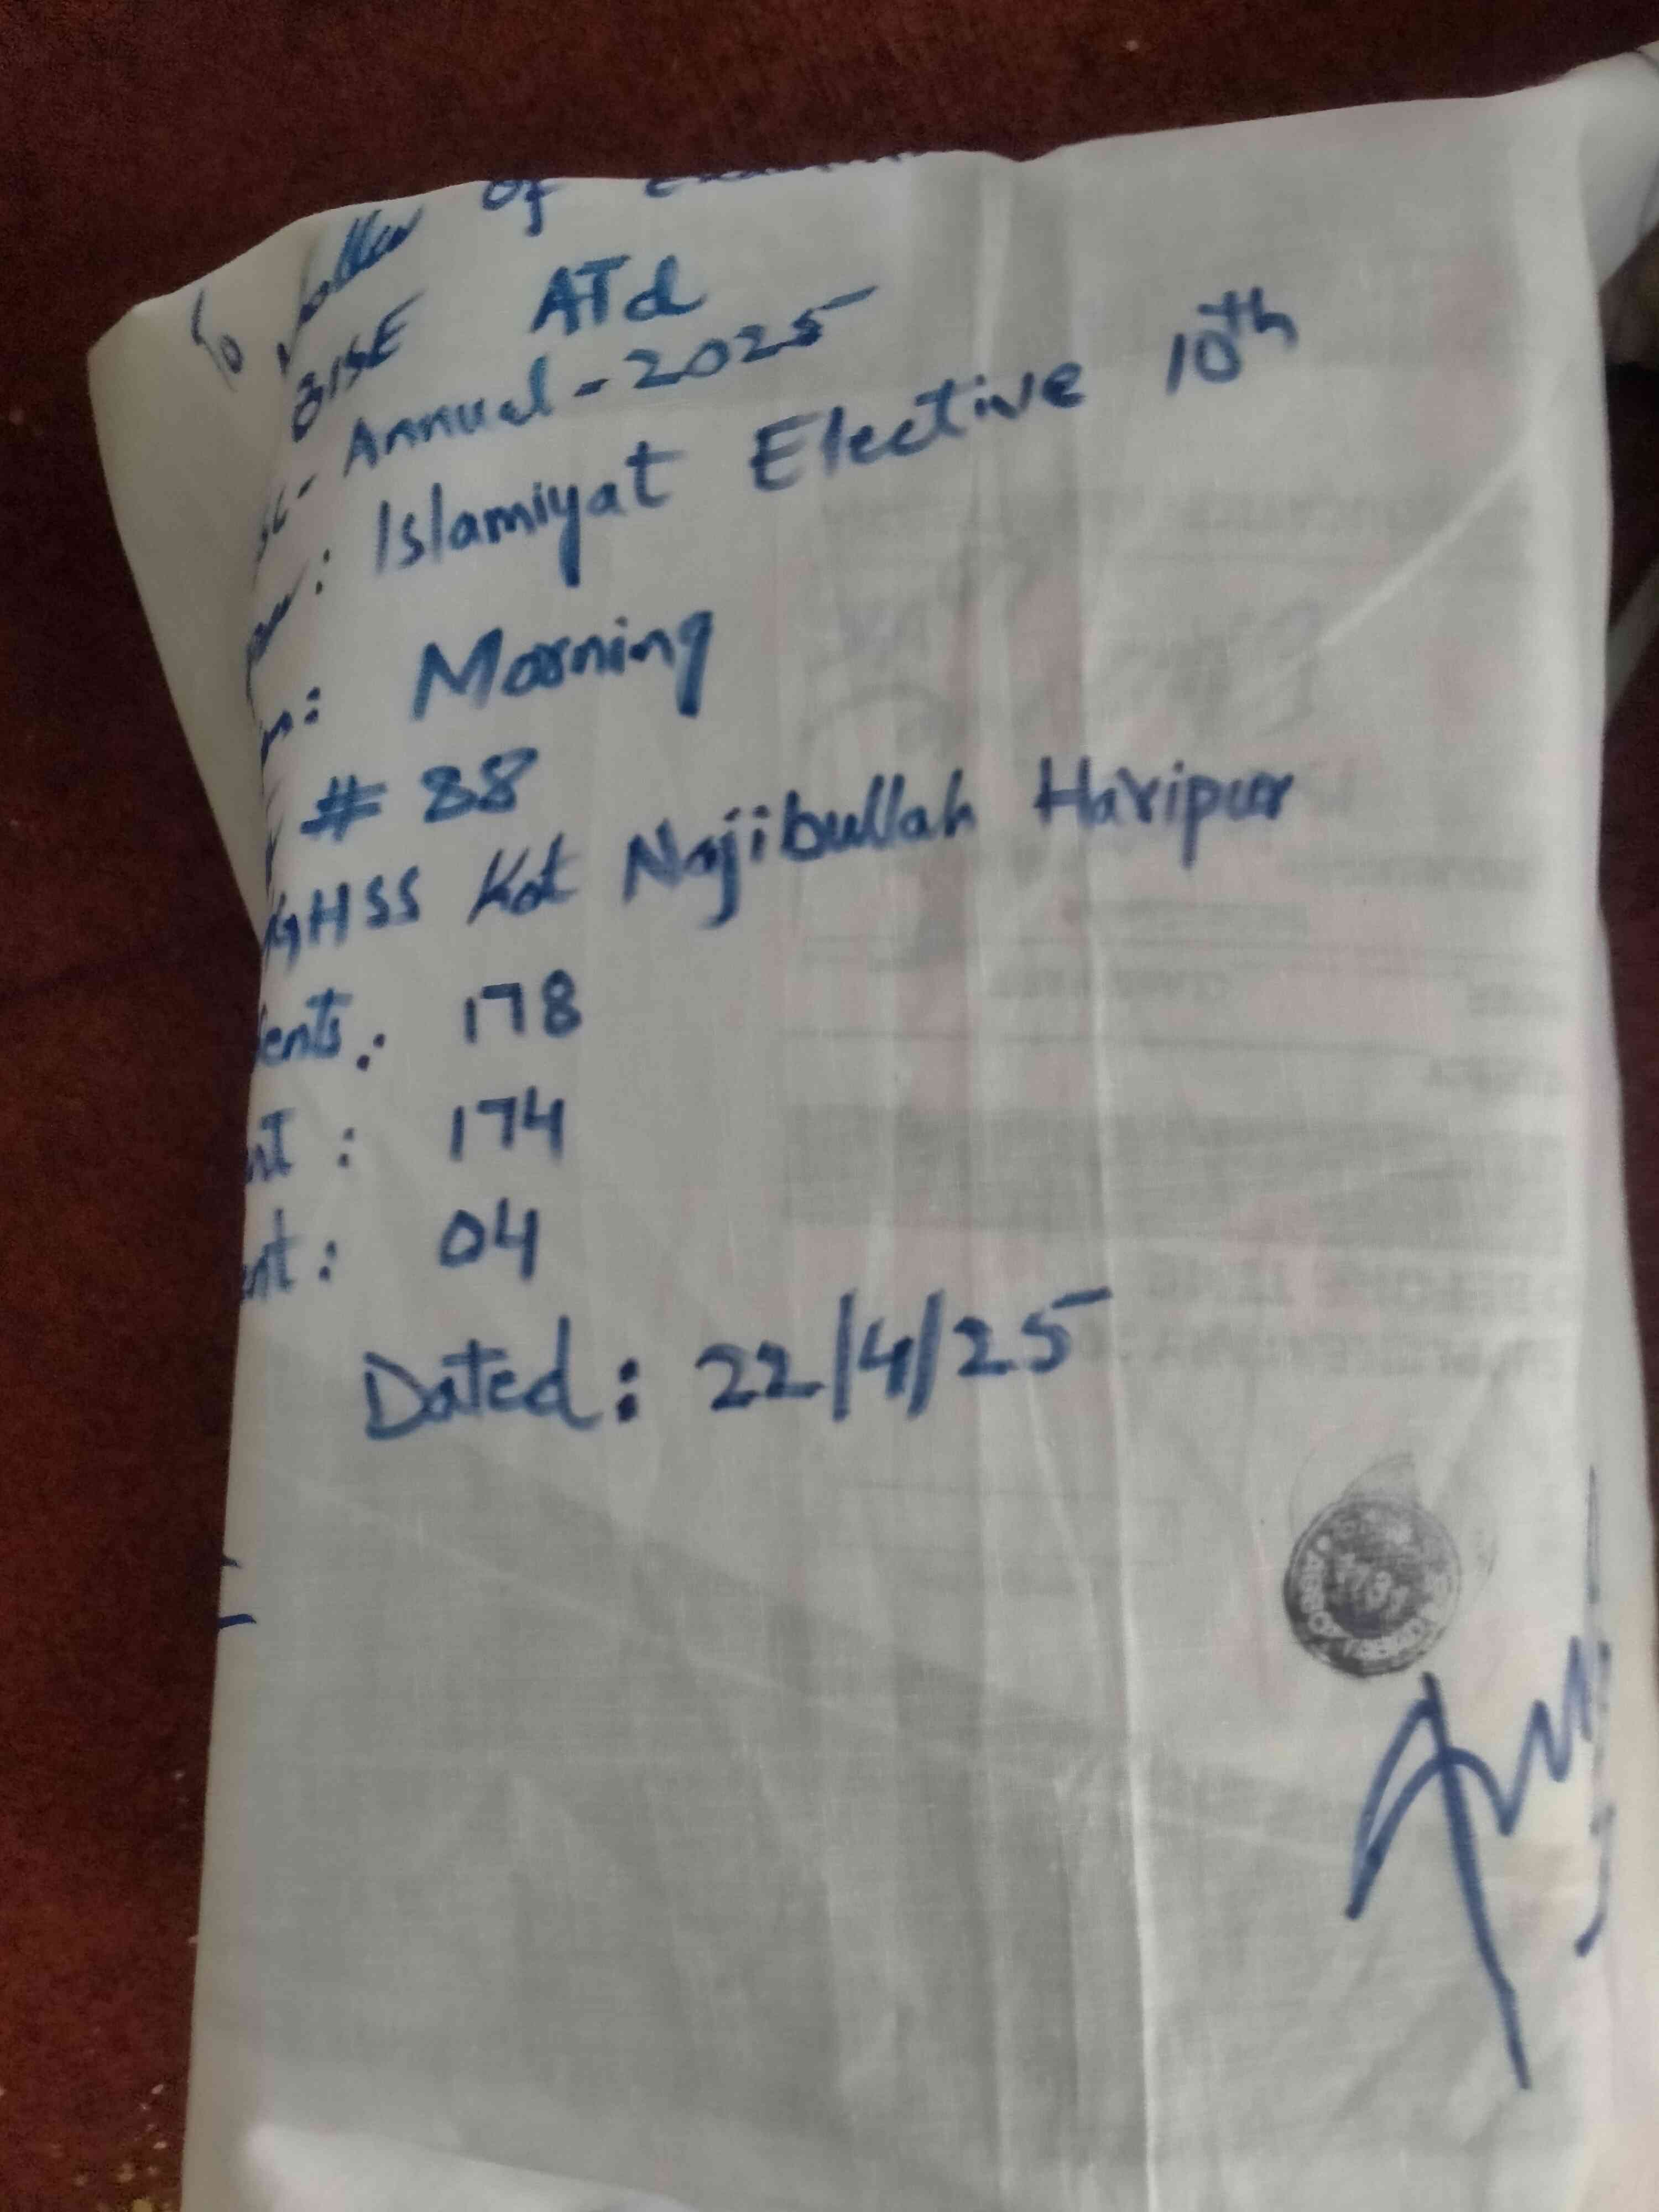 To
of
BISE ATd
Annual-2025
: Islamiyat Elective 10th
: Morning
# 88
GHSS Kot Najibullah Haripur
ents: 178
nt : 174
ent: 04
Dated: 22/4/25